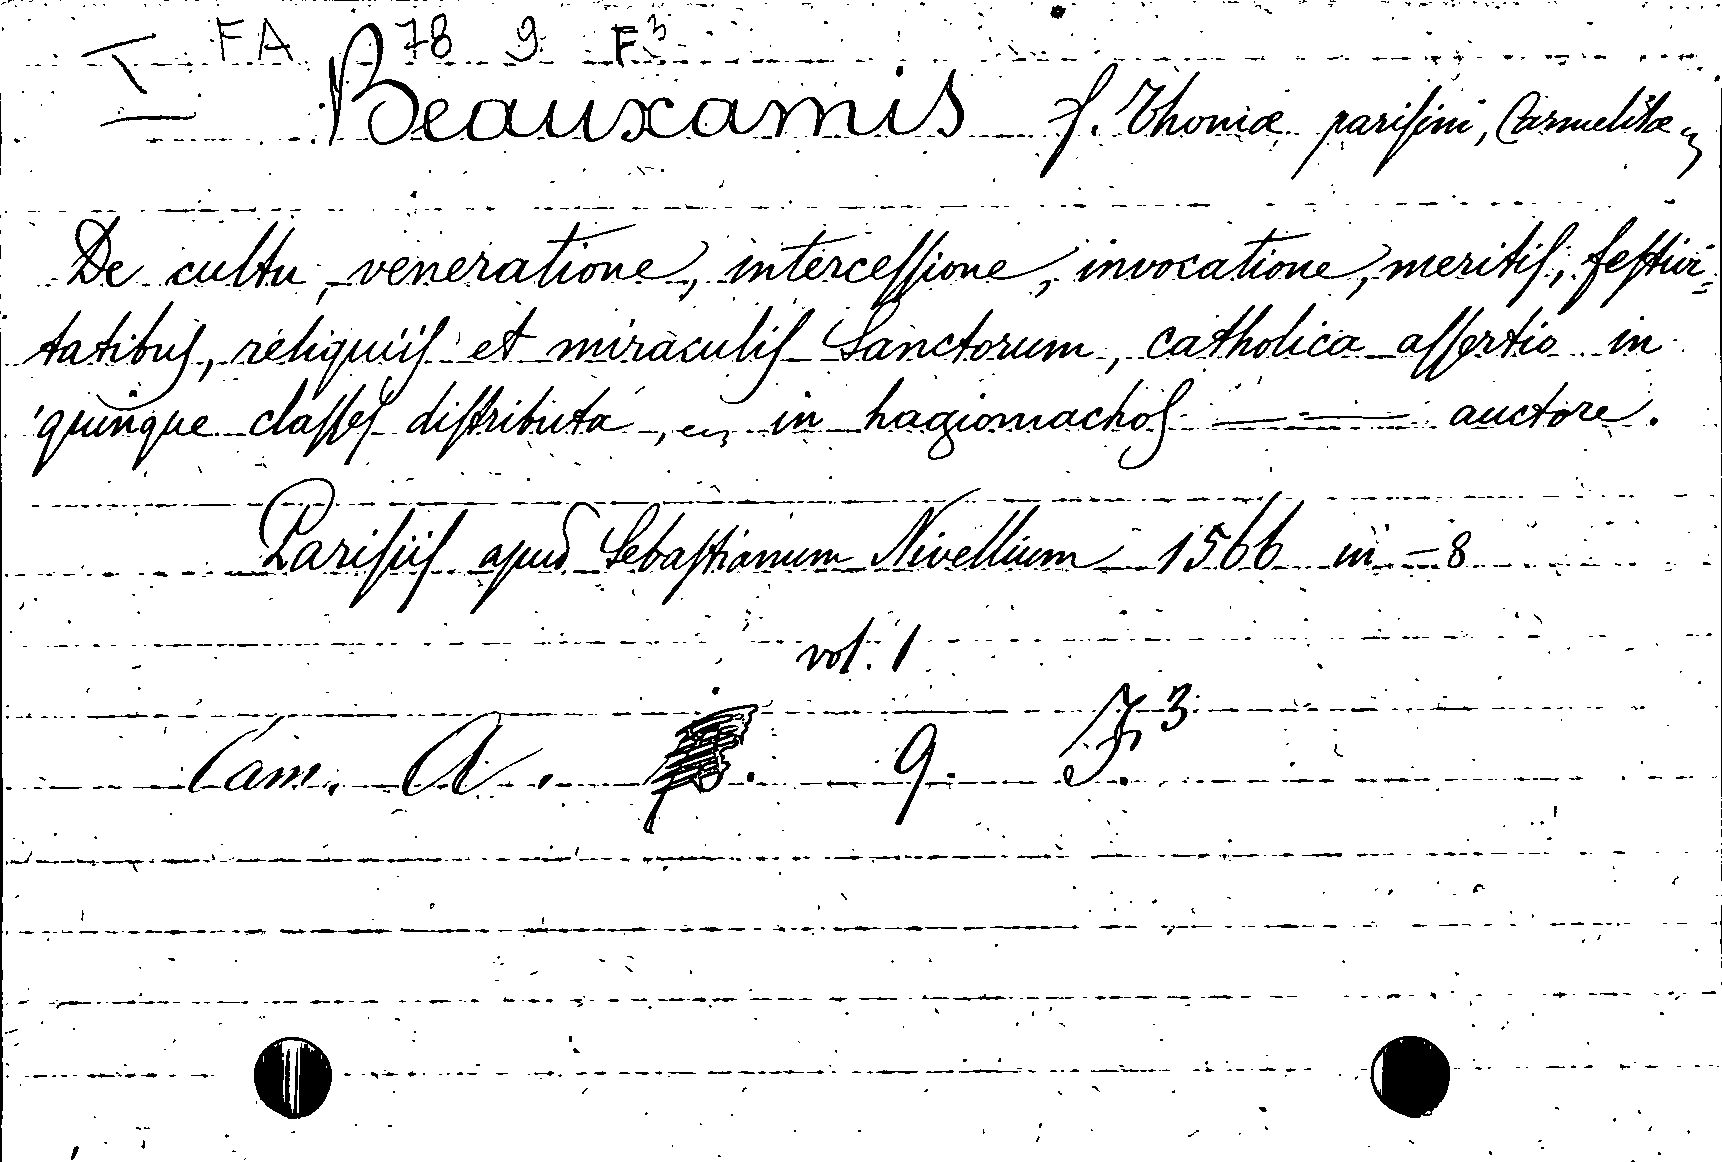 I FA 78 9 F³
Beauxamis f. Thomæ parisini, Carmelitæ
De cultu, veneratione, intercessione, invocatione, meritis, festivi=
tatibus, reliquiis et miraculis Sanctorum, catholica assertio in
quinque classes distributa, in hagiomachos —— auctore.
Parisiis apud Sebastianum Nivellium 1566 in-8
vol. 1
Cam. A. 9. F.³